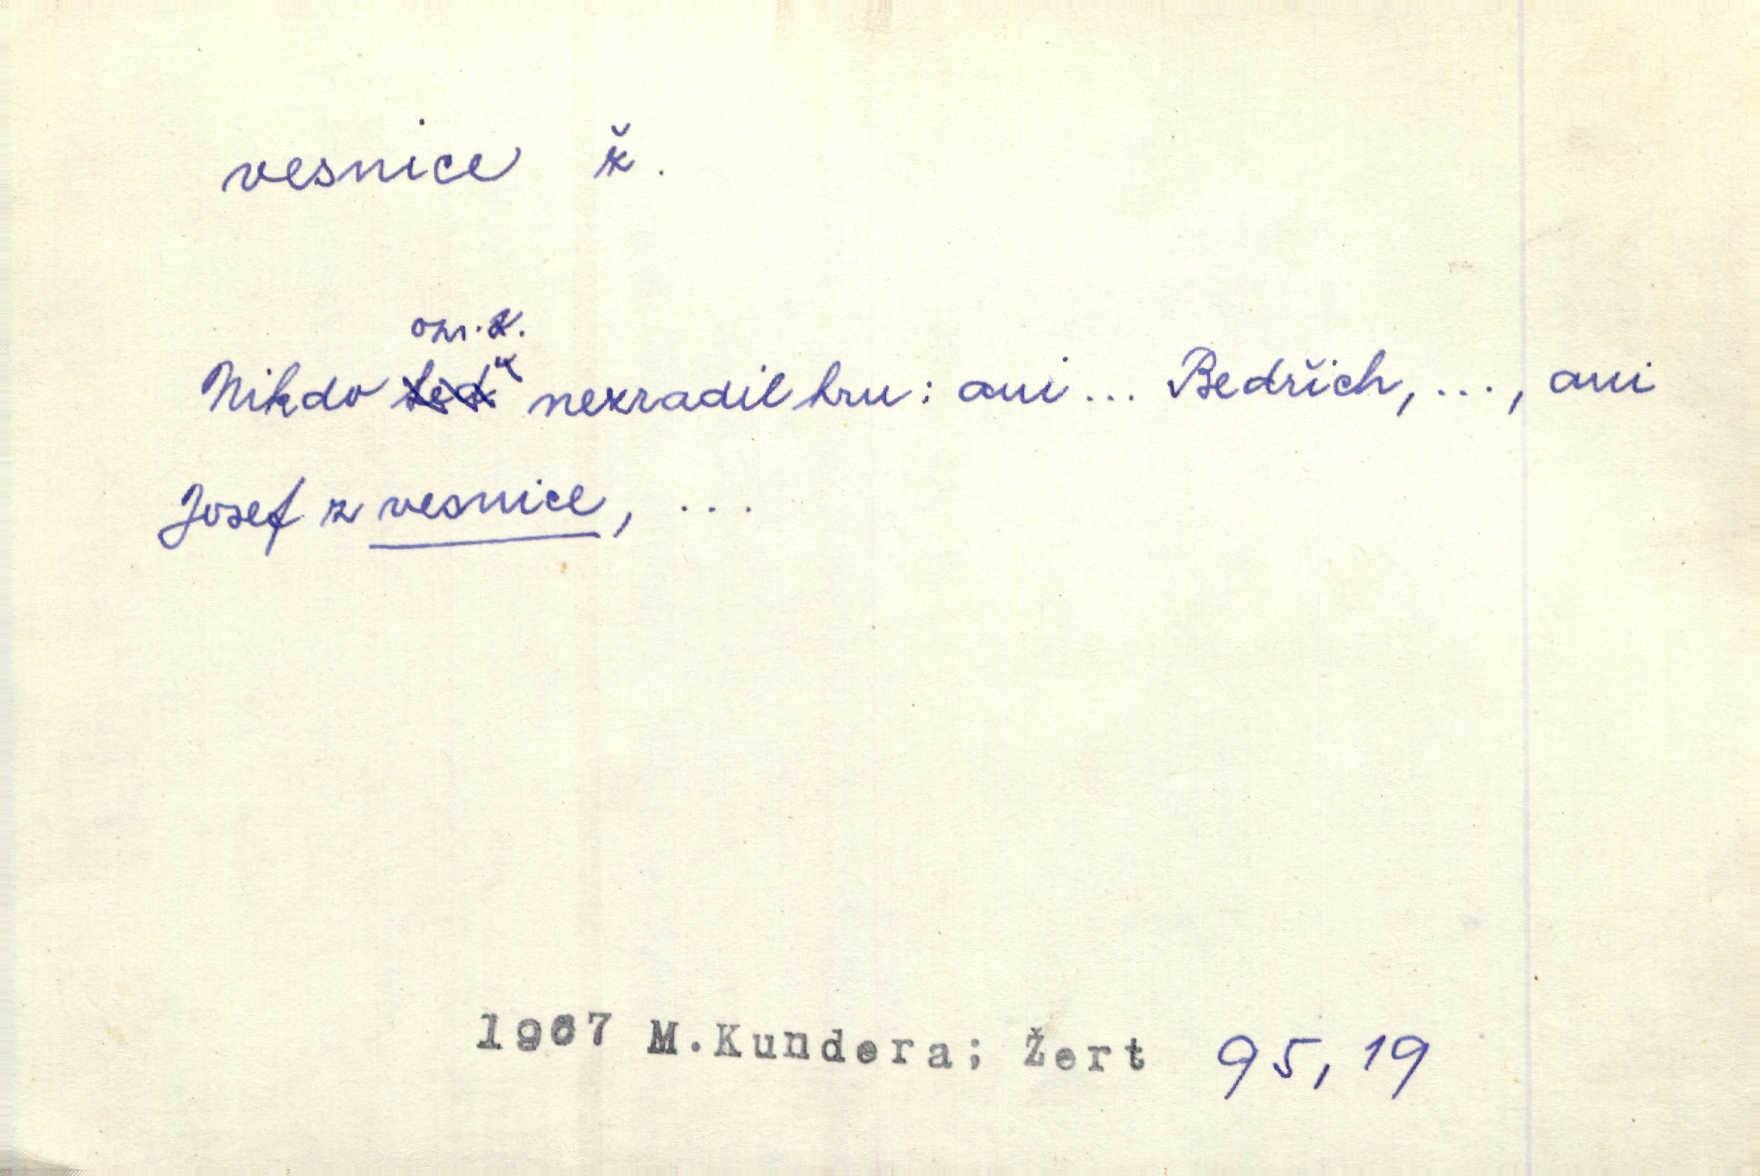 vesnice ž.
Nikdo nezradil hru: ani... Bedřich, ..., ani
Josef z vesnice, ...
1967 M.Kundera; Žert 95, 19